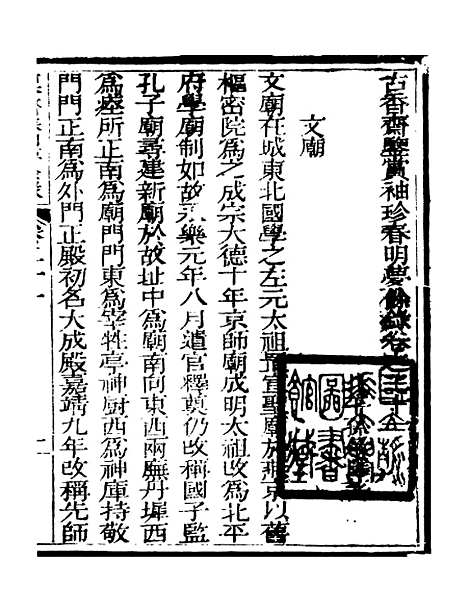 古香齋鑒賞袖珍春明夢餘錄卷之二十一
文廟
文廟在城東北國學之左元太祖置宣聖廟於燕京以舊
樞密院為之成宗大德十年京師廟成明太祖改為北平
府學廟制如故永樂元年八月遣官釋奠仍改稱國子監
孔子廟尋建新廟於故址中為廟南向東西兩廡丹墀西
為瘞所正南為廟門門東為宰牲亭神廚西為神庫持敬
門門正南為外門正殿初名大成殿嘉靖九年改稱先師
圖書館